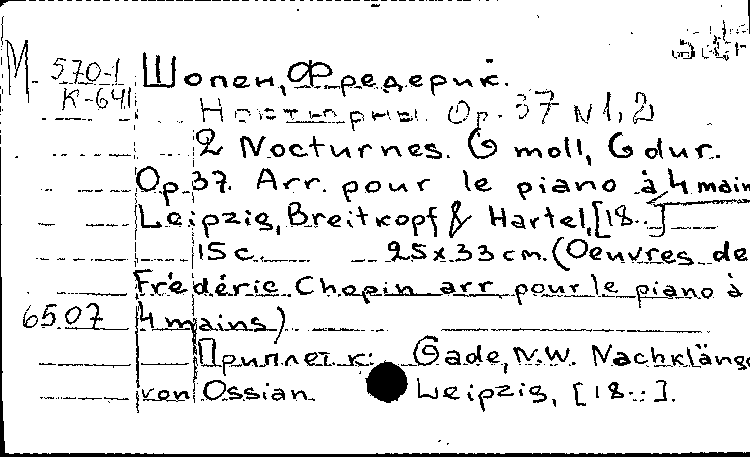 М- 570-1
К-641
Шопен, Фредерик.
Ноктюрны. Op. 37 N 1, 2
2 Nocturnes. G moll, G dur.
Op. 37. Arr. pour le piano à 4 main
Leipzig, Breitkopf & Hartel, [18..]
15 c. 25x33 cm. (Oeuvres de
Frédéric Chopin arr pour le piano à
6507 4 mains)
Приплет к: Gade, N.W. Nachklänge
von Ossian Leipzig, [18..].